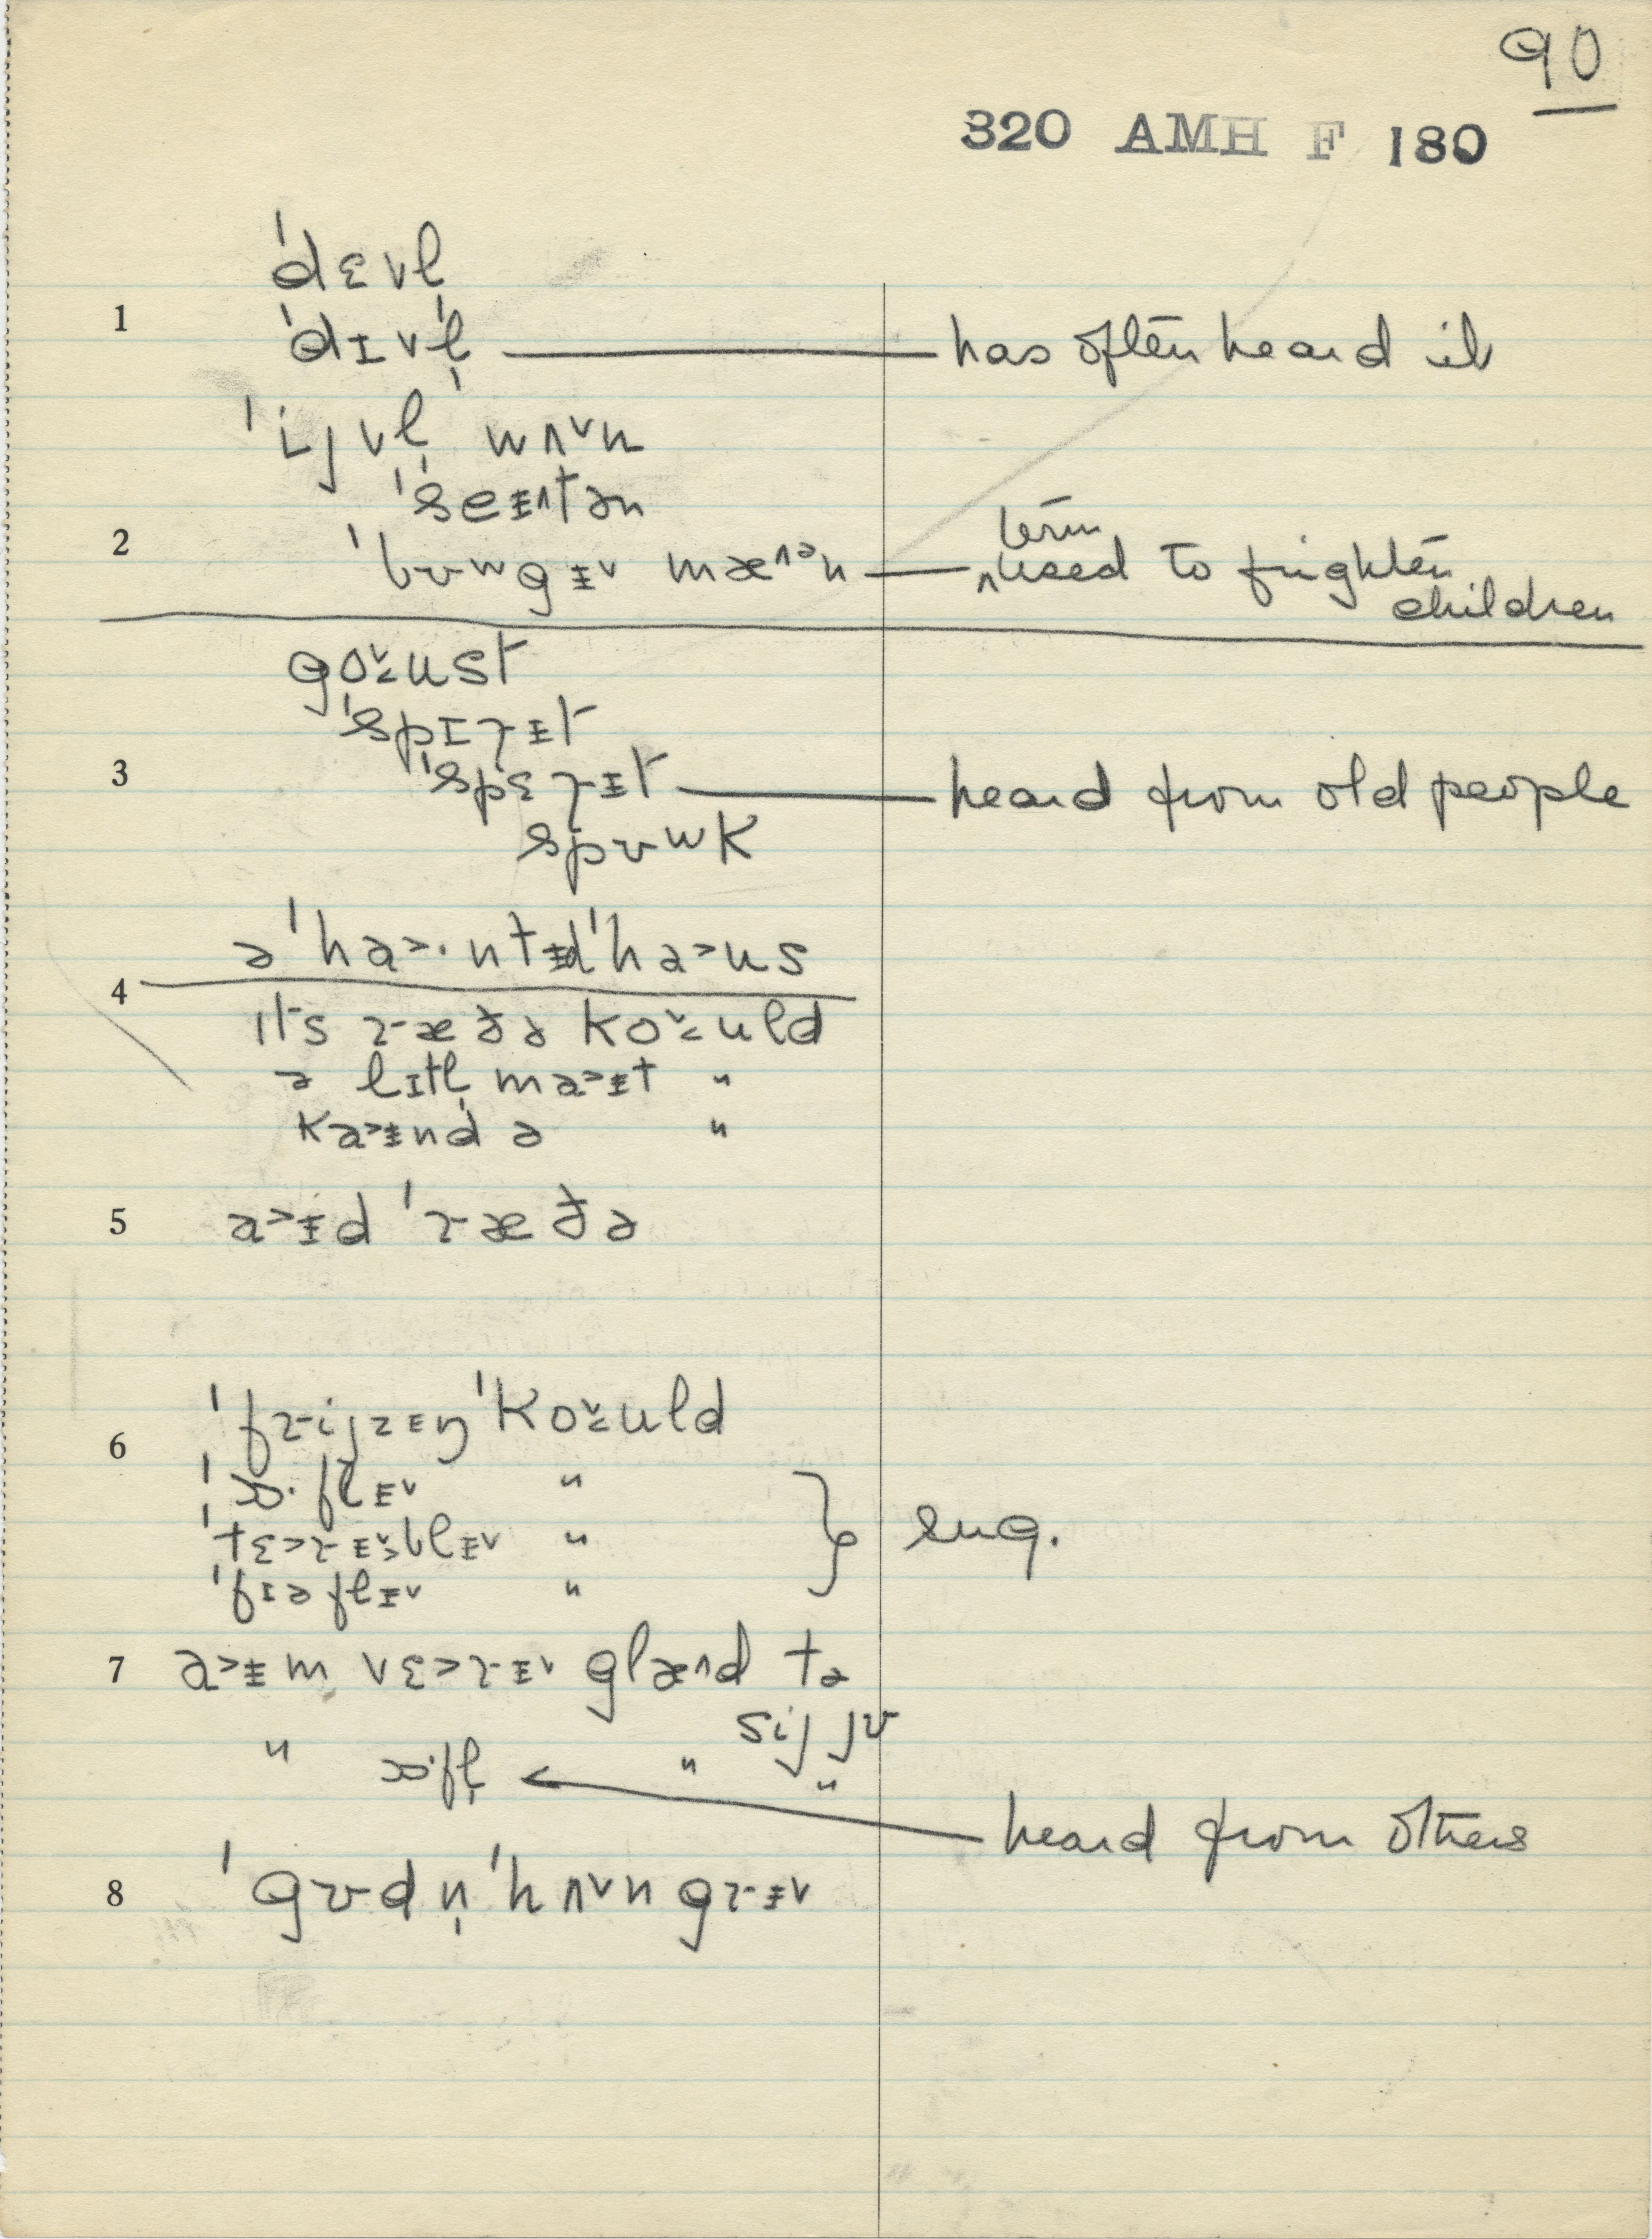 90
320 AMH F 180
ˈdɛvl̩
1 ˈdɪvl̩ — has often heard it
ˈijvl̩ wʌ˅n
ˈseᵻ˄tən
2 ˈbʊwgᵻ˅ mæ˄ᵊn — ‸used to frighten
term
children
go˅˂ust
ˈspɪrᵻt
3 ˈspɛrᵻt — heard from old people
spʊwk
ə ˈha˃·ntᵻdˈha˃us
4
ɪts ræðə ko˅˂uld
ə lɪtl̩ ma˃ᵻt "
ka˃ᵻnd ə "
5 a˃ᵻd ˈræðə
6 ˈfrijzᵻŋ ˈko˅˂uld
ˈɒ·flᵻ˅ "
ˈtɛ˃rᵻ˅˃blᵻ˅ " } sug.
ˈfɪəflᵻ˅ "
7 a˃ᵻm vɛ˃rᵻ˅ glæ˄d tə
sij jʊ
" ɒ·fl̩ ← " "
heard from others
8 ˈgʊdn̩ ˈhʌ˅ngrᵻ˅